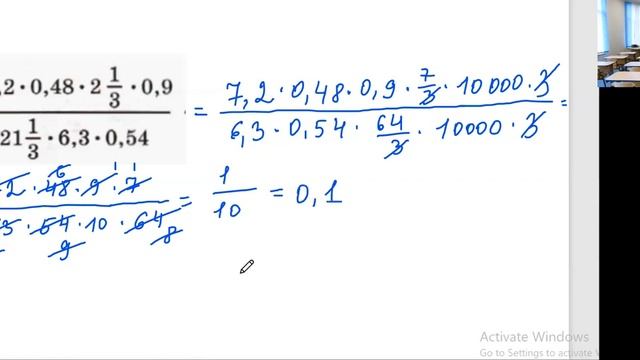 ,2 · 0,48 · 2 1/3 · 0,9 / 21 1/3 · 6,3 · 0,54 = 7,2 · 0,48 · 0,9 · 7/3 · 10 000 · 3 / 6,3 · 0,54 · 64/3 · 10000 · 3 =
2 · 48 · 9 · 7 / 3 · 54 · 10 · 64 = 1/10 = 0,1
6 1 1
9 8
Activate Windows
Go to Settings to activate